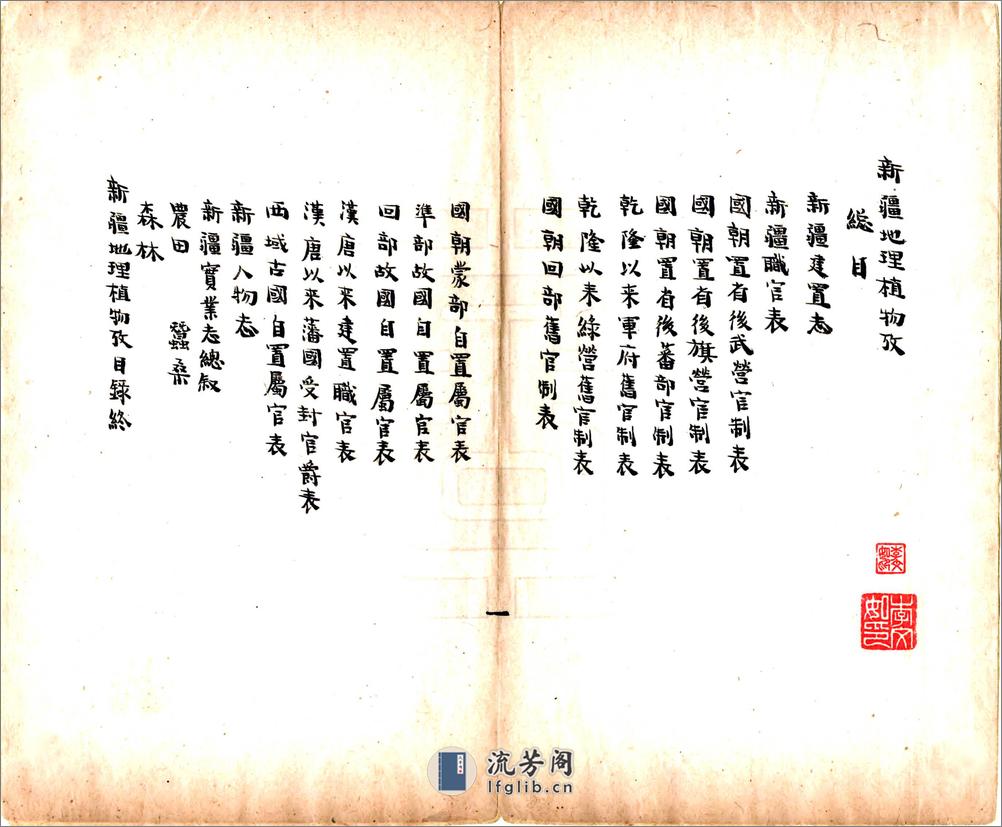 新疆地理植物攷
總目
新疆建置志
新疆職官表
國朝置省後武營官制表
國朝置省後旗營官制表
國朝置省後蕃部官制表
乾隆以來軍府舊官制表
乾隆以來綠營舊官制表
國朝回部舊官制表
國朝蒙部自置屬官表
準部故國自置屬官表
回部故國自置屬官表
漢唐以來建置職官表
漢唐以來藩國受封官爵表
西域古國自置屬官表
新疆人物志
新疆實業志總叙
農田 蠶桑
森林
新疆地理植物攷目錄終
一
李文
如印
流芳阁
lfglib.cn